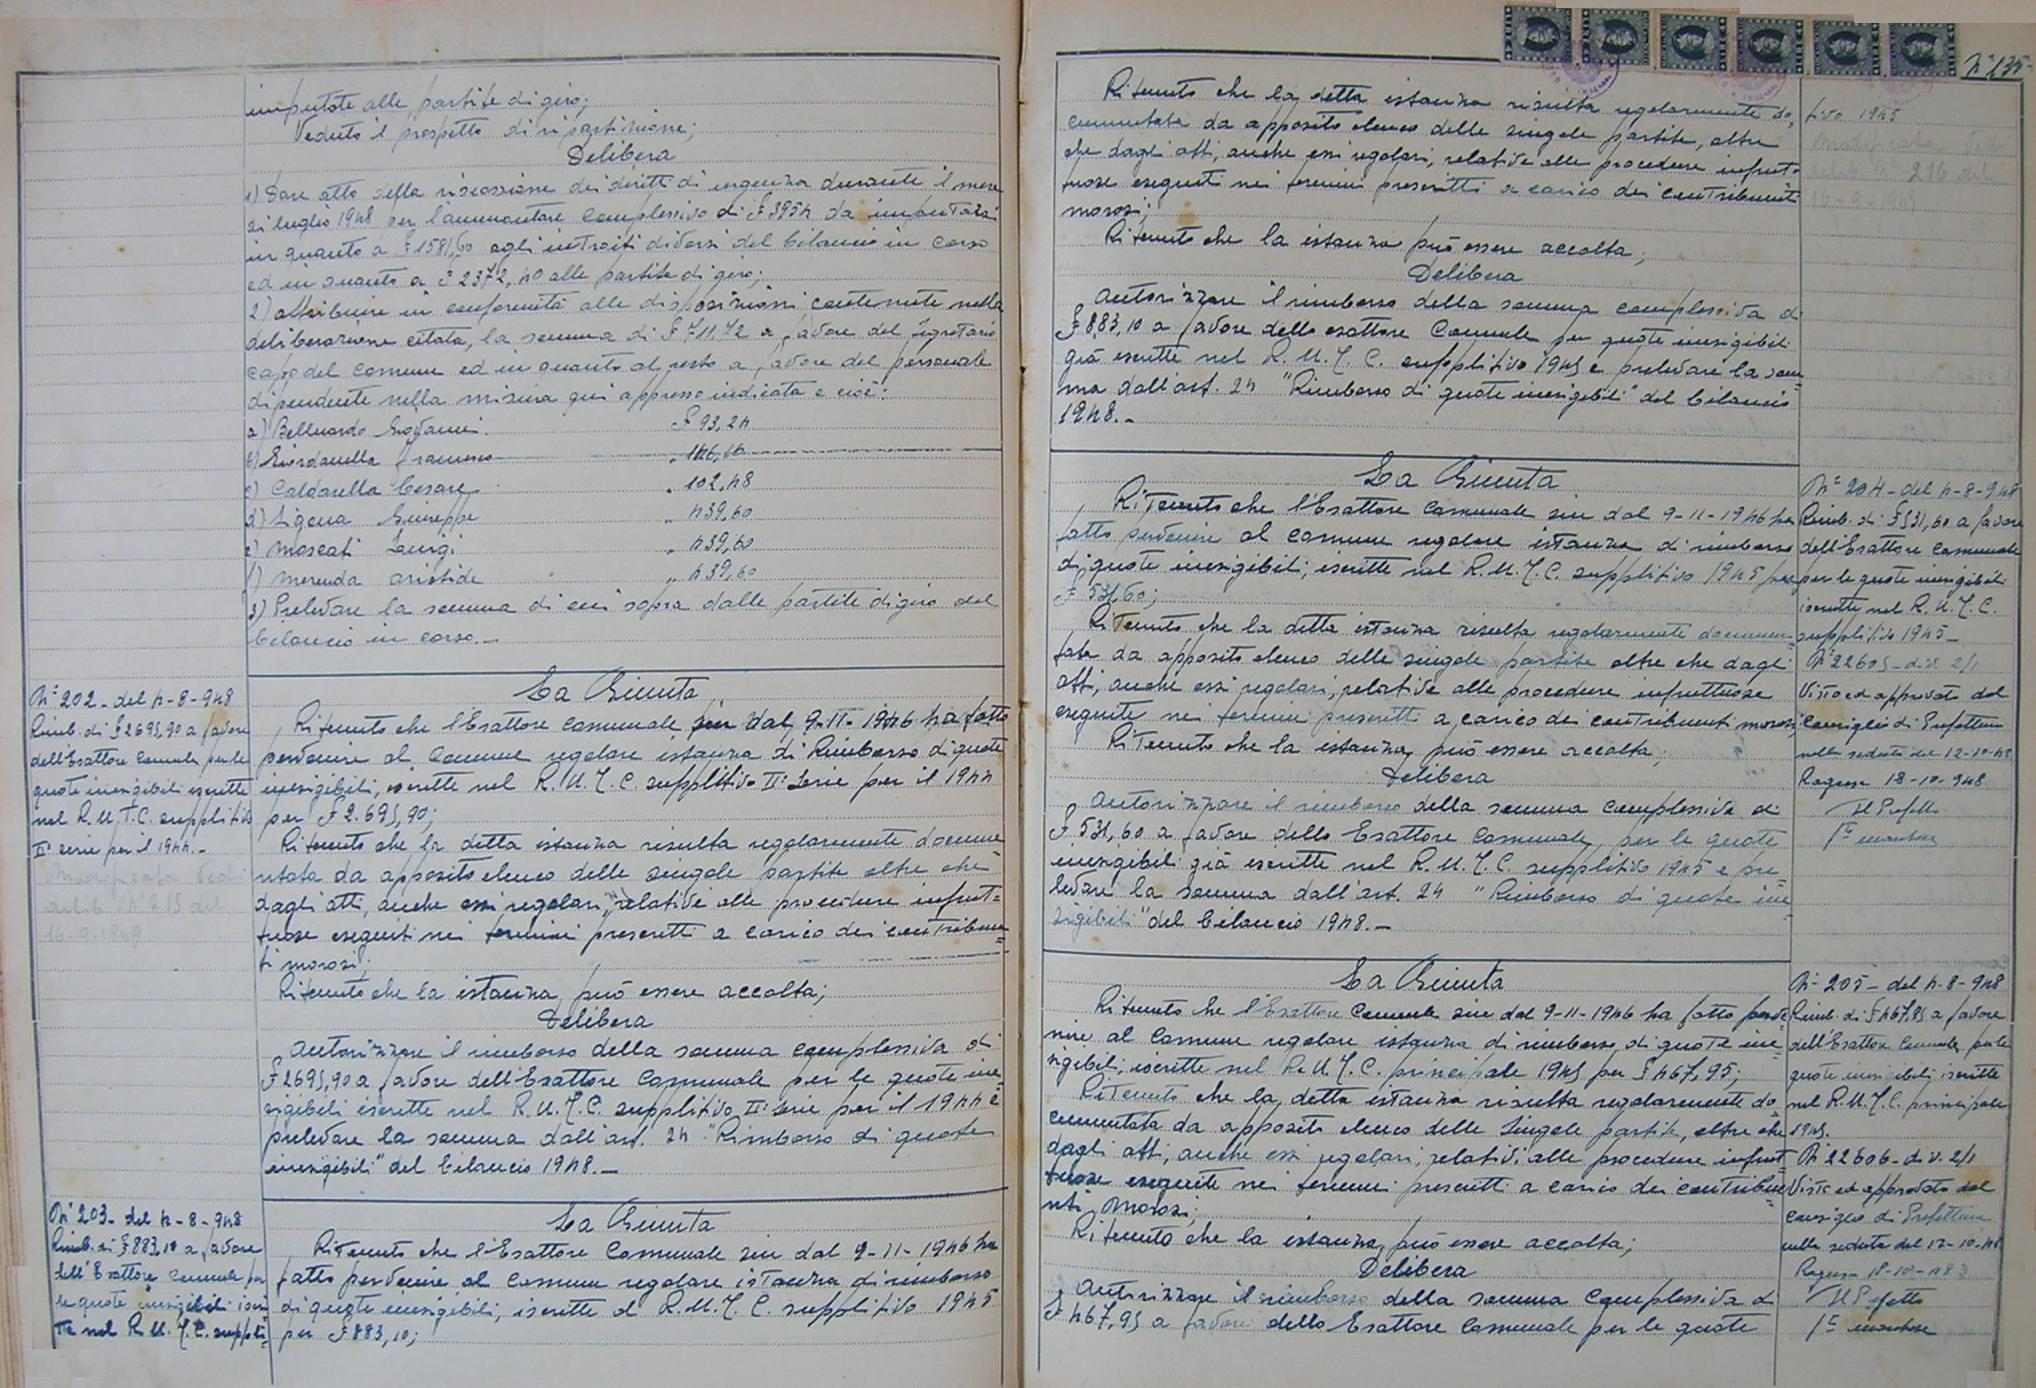 imputate alle partite di giro;
Veduto il prospetto di ripartizione;
Delibera
1) Dare atto della riscossione dei diritti di urgenza durante il mese
di luglio 1948 per l'ammontare complessivo di £ 3954 da imputarsi
in quanto a £ 1581,60 agli introiti diversi del bilancio in corso
ed in quanto a £ 2372,40 alle partite di giro;
2) Attribuire in conformità alle disposizioni contenute nella
deliberazione citata, la somma di £ 711,72 a favore del Segretario
capo del comune ed in quanto al resto a favore del personale
dipendente nella misura qui appresso indicata e cioè:
a) Belluardo Giovanni £ 93,24
b) Giordanella Francesco " 146,16
c) Caldarella Cesare " 102,48
d) Ligona Giuseppe " 439,60
e) Moscati Luigi " 439,60
f) Merenda Aristide " 439,60
3) Prelevare la somma di cui sopra dalle partite di giro del
bilancio in corso.-
N° 202- del 4-8-948
Rimb. di £ 2695,90 a favore
dell'Esattore Comunale per le
quote inesigibili iscritte
nel R.U.T.C. supplitivo
II° serie per il 1944.-
Modificata Vedi
delib. N° 215 del
16-9-1949
La Giunta
Ritenuto che l'Esattore Comunale sin dal 9-11-1946 ha fatto
pervenire al Comune regolare istanza di Rimborso di quote
inesigibili, iscritte nel R.U.T.C. supplitivo II° Serie per il 1944
per £ 2.695,90;
Ritenuto che la detta istanza risulta regolarmente docume
ntata da apposito elenco delle singole partite oltre che
dagli atti, anche essi regolari, relative alle procedure infrut=
tuose eseguiti nei termini prescritti a carico dei contribuen=
ti morosi;
Ritenuto che la istanza può essere accolta;
Delibera
Autorizzare il rimborso della somma complessiva di
£ 2695,90 a favore dell'Esattore Comunale per le quote ine=
sigibili iscritte nel R.U.T.C. supplitivo II° Serie per il 1944 e
prelevare la somma dall'art. 24 "Rimborso di quote
inesigibili" del bilancio 1948.-
N° 203- del 4-8-948
Rimb. di £ 883,10 a favore
dell'Esattore Comunale per
le quote inesigibili iscri
tte nel R.U.T.C. suppli=
La Giunta
Ritenuto che l'Esattore Comunale sin dal 9-11-1946 ha
fatto pervenire al Comune regolare istanza di rimborso
di quote inesigibili, iscritte al R.U.T.C. supplitivo 1945
per £ 883,10;
N° 135-
tivo 1945
Modificata Vedi
delib. N° 216 del
16-9-1949
Ritenuto che la detta istanza risulta regolarmente do=
cumentata da apposito elenco delle singole partite, oltre
che dagli atti, anche essi regolari, relative alle procedure infrut=
tuose eseguiti nei termini prescritti a carico dei contribuenti
morosi;
Ritenuto che la istanza può essere accolta;
Delibera
Autorizzare il rimborso della somma complessiva di
£ 883,10 a favore dello esattore Comunale per quote inesigibili
già iscritte nel R.U.T.C. supplitivo 1945 e prelevare la som=
ma dall'art. 24 "Rimborso di quote inesigibili" del bilancio
1948.-
La Giunta
Ritenuto che l'Esattore Comunale sin dal 9-11-1946 ha
fatto pervenire al comune regolare istanza di rimborso
di quote inesigibili, iscritte nel R.U.T.C. supplitivo 1945 per
£ 531,60;
Ritenuto che la detta istanza risulta regolarmente documen=
tata da apposito elenco delle singole partite oltre che dagli
atti, anche essi regolari, relative alle procedure infruttuose
eseguite nei termini prescritti a carico dei contribuenti morosi;
Ritenuto che la istanza può essere accolta;
Delibera
Autorizzare il rimborso della somma complessiva di
£ 531,60 a favore dello Esattore Comunale, per le quote
inesigibili già iscritte nel R.U.T.C. supplitivo 1945 e pre=
levare la somma dall'art. 24 "Rimborso di quote ine=
sigibili" del bilancio 1948.-
N° 204- del 4-8-948
Rimb. di £ 531,60 a favore
dell'Esattore Comunale
per le quote inesigibili
iscritte nel R.U.T.C.
supplitivo 1945-
N° 22605-div. 2/1
Visto ed approvato dal
Consiglio di Prefettura
nella seduta del 12-10-48
Ragusa 18-10-948
Il Prefetto
La Giunta
Ritenuto che l'Esattore Comunale sin dal 9-11-1946 ha fatto perve=
nire al Comune regolare istanza di rimborso di quote ine=
sigibili, iscritte nel R.U.T.C. principale 1945 per £ 467,95;
Ritenuto che la detta istanza risulta regolarmente do=
cumentata da apposito elenco delle Singole partite, oltre che
dagli atti, anche essi regolari, relativi alle procedure infrut=
tuose eseguite nei termini prescritti a carico dei contribue=
nti Morosi;
Ritenuto che la istanza può essere accolta;
Delibera
Autorizzare il rimborso della somma complessiva di
£ 467,95 a favore dello Esattore Comunale per le quote
N° 205- del 4-8-948
Rimb. di £ 467,95 a favore
dell'Esattore Comunale per le
quote inesigibili iscritte
nel R.U.T.C. principale
1945.
N° 22606-div. 2/1
Visto ed approvato dal
Consiglio di Prefettura
nella seduta del 12-10-48
Ragusa 18-10-
Il Prefetto